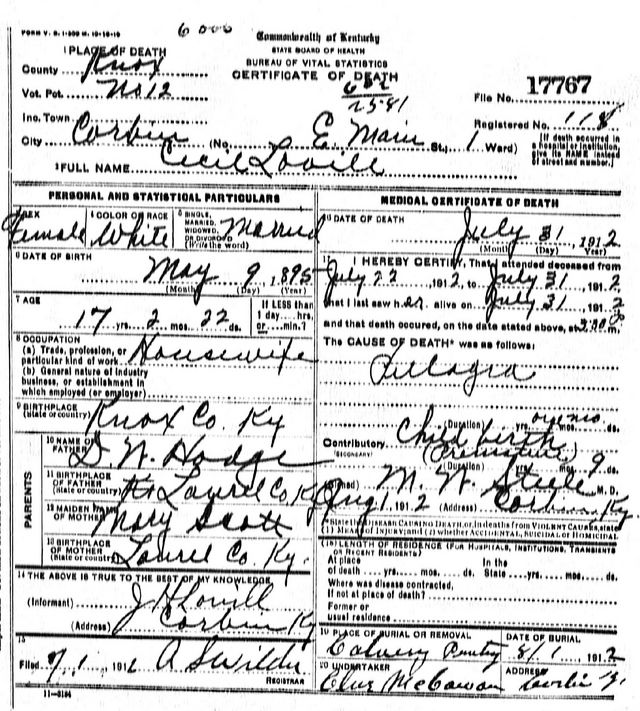 FORM V. S. 1-300 M. 10-18-10
6000
Commonwealth of Kentucky
STATE BOARD OF HEALTH
BUREAU OF VITAL STATISTICS
CERTIFICATE OF DEATH
1 PLACE OF DEATH
County Knox
Vot. Pct. No 12
Inc. Town
City Corbin (No. E. Main St., 1 Ward)
2581
File No. 17767
Registered No. 118
[If death occurred in a hospital or institution, give its NAME instead of street and number.]
2 FULL NAME Cecil Lovill
PERSONAL AND STATISTICAL PARTICULARS
3 SEX Female
4 COLOR OR RACE White
5 SINGLE, MARRIED, WIDOWED, OR DIVORCED (Write the word) Married
6 DATE OF BIRTH
May 9, 1895
(Month) (Day) (Year)
7 AGE
17 yrs. 2 mos. 22 ds.
If LESS than 1 day ... hrs. or ... min.?
8 OCCUPATION
(a) Trade, profession, or particular kind of work Housewife
(b) General nature of industry business, or establishment in which employed (or employer)
9 BIRTHPLACE (State or country) Knox Co Ky
PARENTS
10 NAME OF FATHER Hodge
11 BIRTHPLACE OF FATHER (State or country) Laurel Co Ky
12 MAIDEN NAME OF MOTHER Mary Scott
13 BIRTHPLACE OF MOTHER (State or country) Laurel Co Ky.
14 THE ABOVE IS TRUE TO THE BEST OF MY KNOWLEDGE
(Informant) J H Lovill
(Address) Corbin Ky
15
Filed 1, 1912 A S Wilder
REGISTRAR
MEDICAL CERTIFICATE OF DEATH
16 DATE OF DEATH
July 31, 1912
(Month) (Day) (Year)
17 I HEREBY CERTIFY, That I attended deceased from
July 22 1912, to July 31, 1912
that I last saw her alive on July 31, 1912
and that death occured, on the date stated above, at
The CAUSE OF DEATH* was as follows:
(Duration) yrs. mos. ds.
Contributory Child birth
(SECONDARY) (Premature)
(Duration) yrs. mos. 9 ds.
(Signed) M. W. Steele M. D.
Aug 1, 1912 (Address) Corbin Ky.
*State the DISEASE CAUSING DEATH, or, in deaths from VIOLENT CAUSES, state (1) MEANS OF INJURY; and (2) whether ACCIDENTAL, SUICIDAL or HOMICIDAL
18 LENGTH OF RESIDENCE (FOR HOSPITALS, INSTITUTIONS, TRANSIENTS OR RECENT RESIDENTS)
At place of death yrs. mos. ds. In the State yrs. mos. ds.
Where was disease contracted, If not at place of death?
Former or usual residence
19 PLACE OF BURIAL OR REMOVAL
Calvery
DATE OF BURIAL
8/1, 1912
20 UNDERTAKER
McCowan
ADDRESS
Corbin Ky
11-3184